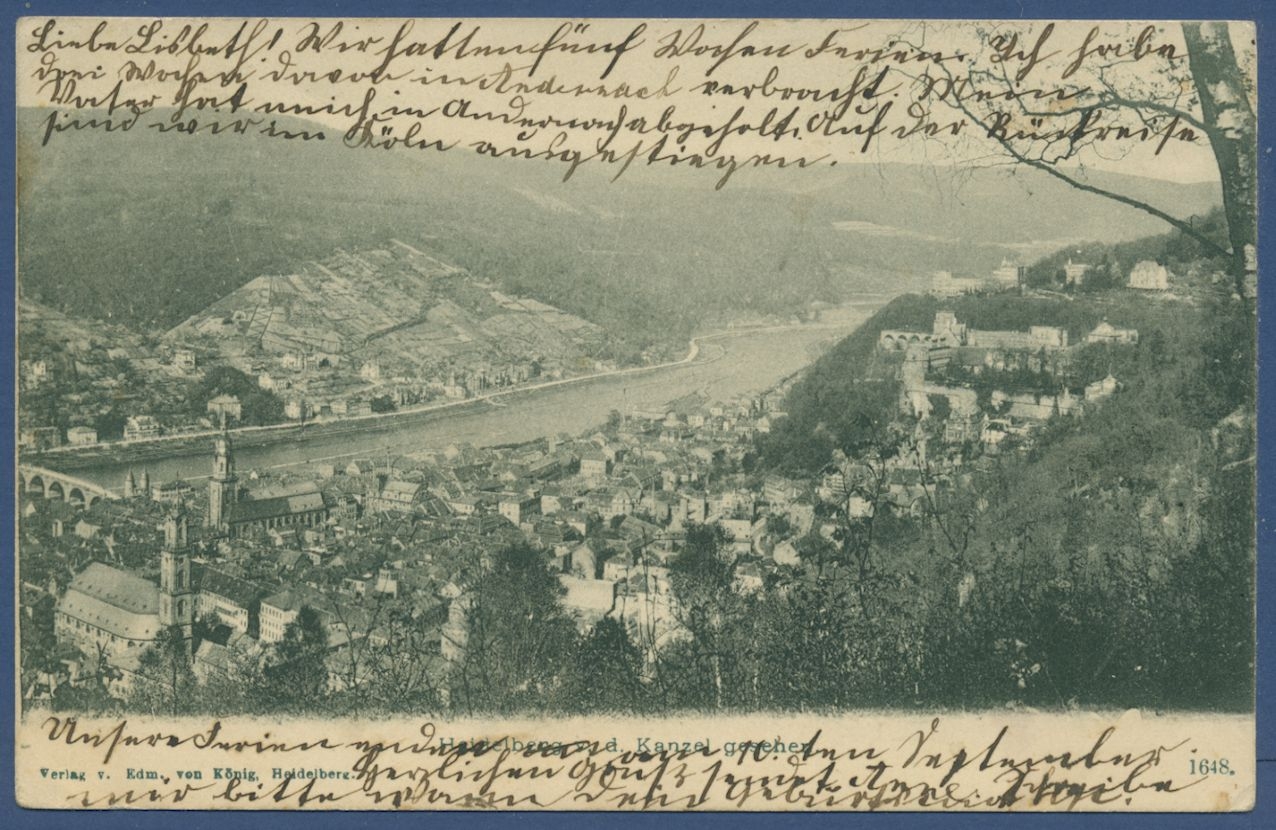 Liebe Lisbeth! Wir hatten fünf Wochen Ferien. Ich habe
drei Wochen davon in Andernach verbracht. Mein
Vater hat mich in Andernach abgeholt. Auf der Rückreise
sind wir in Köln ausgestiegen.
Heidelberg v. d. Kanzel gesehen.
Unsere Ferien enden am 10. ten September
Verlag v. Edm. von König, Heidelberg.
1648.
Herzlichen Gruß sendet Schreibe
mir bitte wann dein Geburtstag